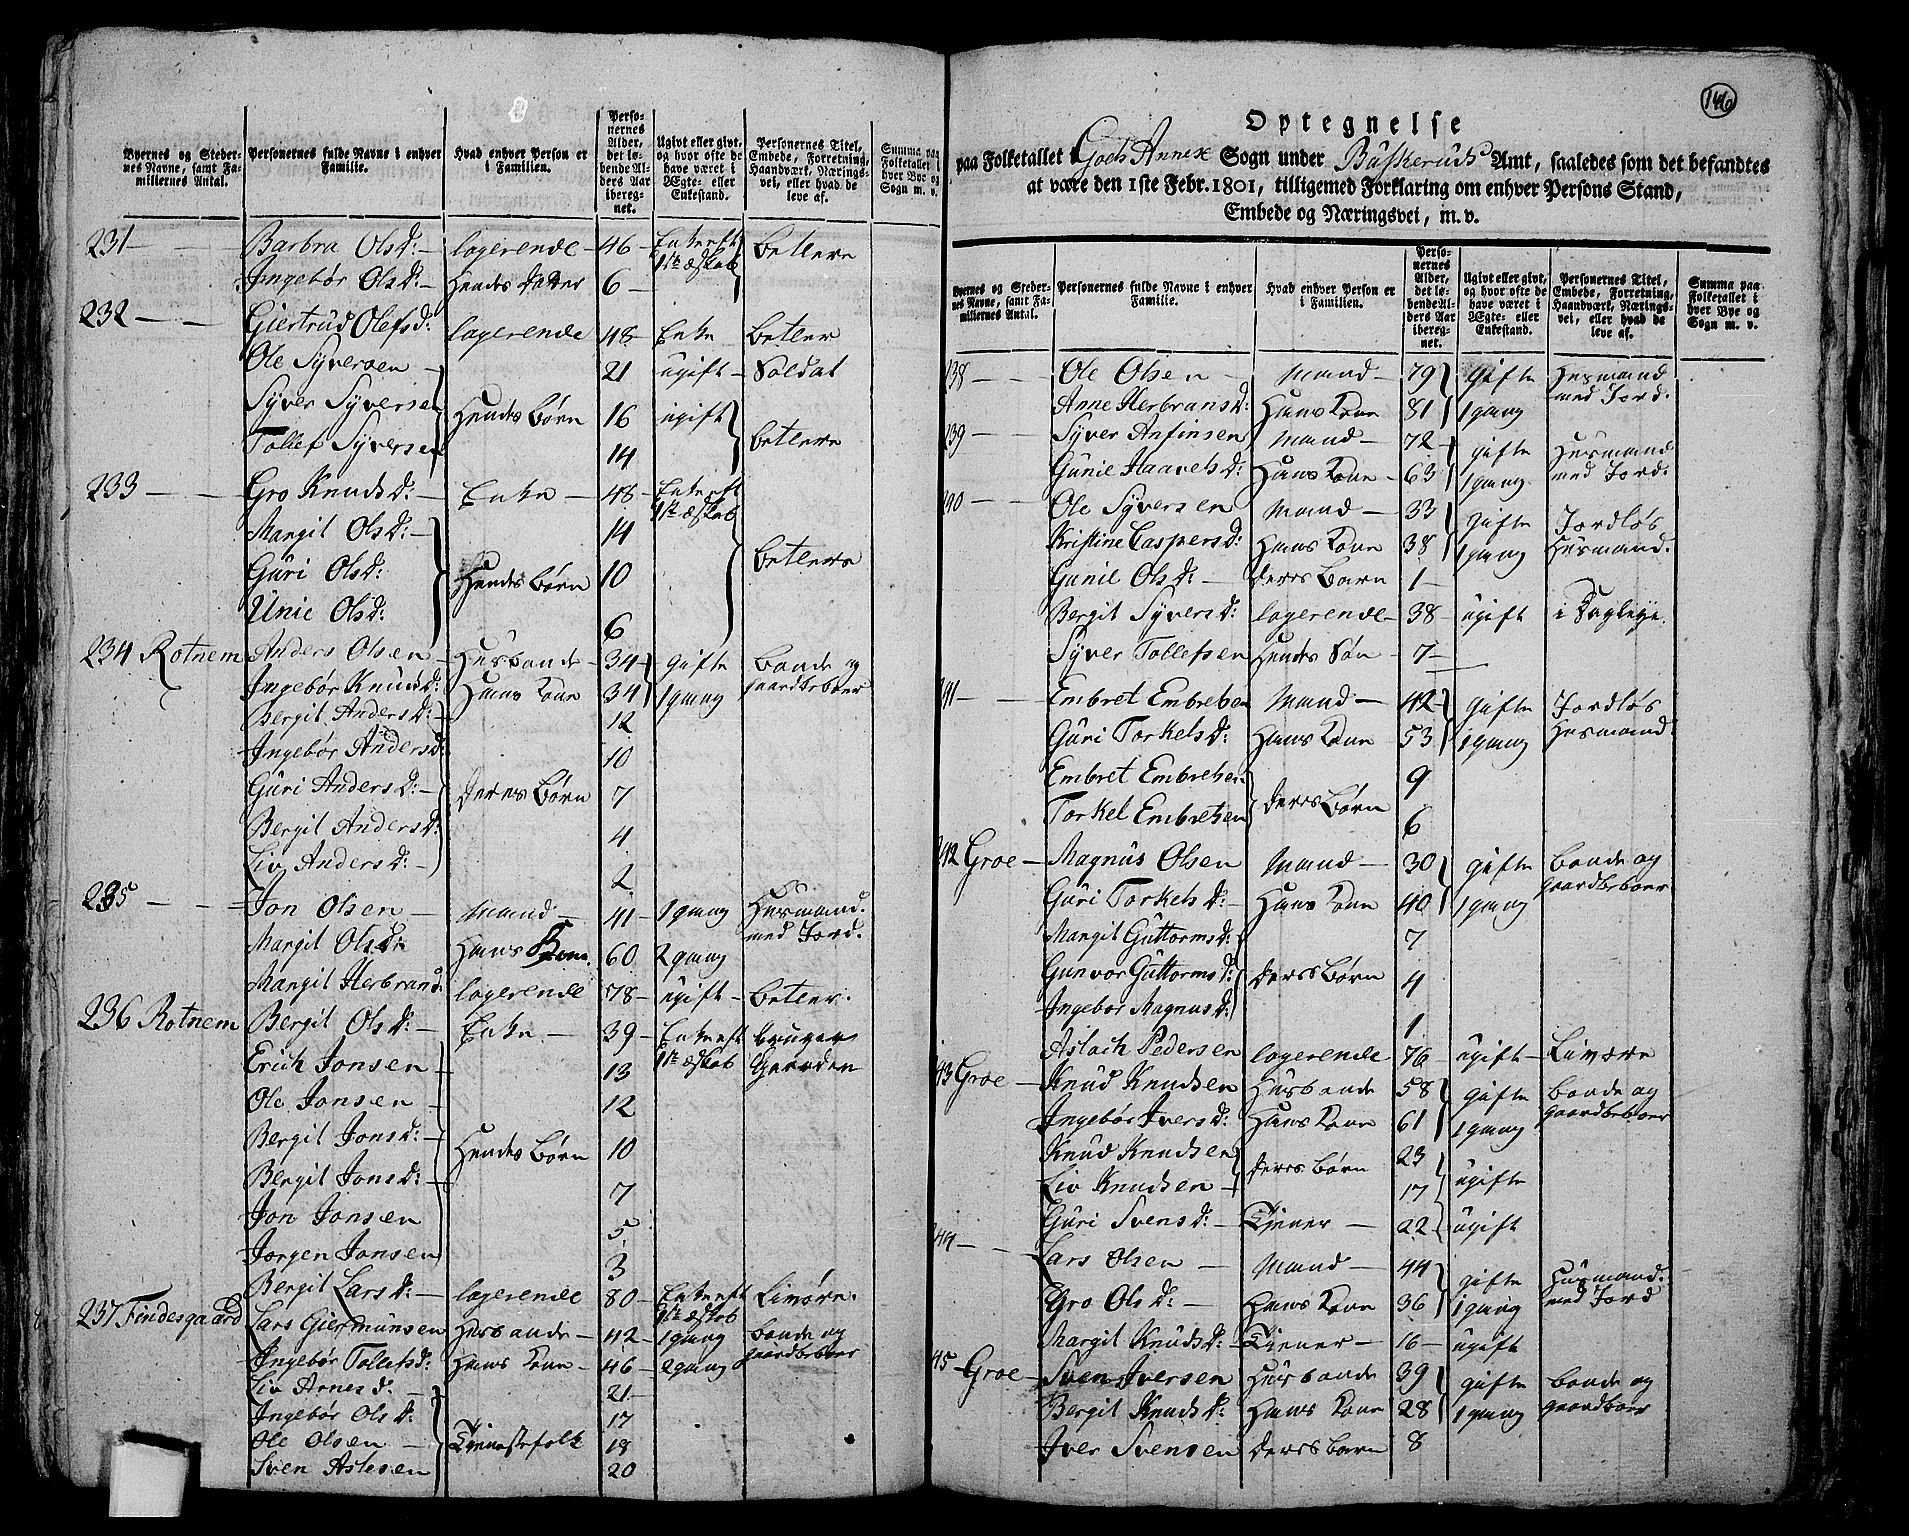 Byernes og Stedernes Navne, samt Familiernes Antal. | Personernes fulde Navne i enhver Familie. | Hvad enhver Person er i Familien. | Personernes Alder, det løbende Alders Aar iberegnet. | Ugivt eller givt, og hvor ofte de have været i Ægte- eller Enkestand. | Personernes Titel, Embede, Forretning, Haandværk, Næringsvei, eller hvad de leve af. | Summa paa Folketallet i hver Bye og Sogn m. v.
231 — Barbra Olsd: — logerende — 46 — Enke eft 1ste ægskab — betlere
Ingebør Olsd: — Hendes Datter — 6 —
232 — Giertrud Olefsd: — logerende — 48 — Enke — betler
Ole Syversen — 21 — ugift — Soldat
Syver Syversen — Hendes Børn — 16 — ugift
Tollef Syversen — 14 — betlere
233 — Gro Knudsd: — Enke — 48 — Enke eft 1ste ægskab
Margit Olsd: — 14
Guri Olsd: — Hendes Børn — 10 — betlere
Unie Olsd: — 6
234 Rotnem Anders Olsen — Husbonde — 34 — gifte — bonde og
Ingebør Knudsd: — Hans Kone — 34 — 1 gang — gaardbeboer
Bergit Andersd: — 12
Ingebør Andersd: — 10
Guri Andersd: — deres Børn — 7
Bergit Andersd: — 4
Liv Andersd: — 2
235 — Jon Olsen — Mand — 41 — 1 gang — Husmand med Jord.
Margit Olsdr — Hans Kone — 60 — 2 gang
Margit Herbransd: — logerende — 78 — ugift — betler.
236 Rotnem Bergit Olsd: — Enke — 39 — Enke eft 1ste ægskab — bruger Gaarden
Erich Jonsen — 13
Ole Jonsen — 12
Bergit Jonsd: — Hendes Børn — 10
Bergit Jonsd: — 7
Jon Jonsen — 5
Jørgen Jonsen — 3
Bergit Larsd: — logerende — 80 — Enke eft 1ste ægskab — Limøre.
237 Findesgaard Lars Giermunsen — Husbonde — 42 — 1 gang — bonde og
Ingebør Tollefsd: — Hans Kone — 46 — 2 gang — gaardbeboer
Liv Arnesd: — 21
Ingebør Olsd: — 17
Ole Olsen — Tienestefolk — 18
Sven Aslesen — 20
146
Optegnelse
paa Folketallet i Gols Annex Sogn under Buskeruds Amt, saaledes som det befandtes
at være den 1ste Febr. 1801, tilligemed Forklaring om enhver Persons Stand,
Embede og Næringsvei, m. v.
Byernes og Stedernes Navne, samt Familiernes Antal. | Personernes fulde Navne i enhver Familie. | Hvad enhver Person er i Familien. | Personernes Alder, det løbende Alders Aar iberegnet. | Ugivt eller givt, og hvor ofte de have været i Ægte- eller Enkestand. | Personernes Titel, Embede, Forretning, Haandværk, Næringsvei, eller hvad de leve af. | Summa paa Folketallet i hver Bye og Sogn m. v.
238 — Ole Olsen — Mand — 79 — gifte — Husmand
Anne Herbransd: — Hans Kone — 81 — 1 gang — med Jord.
239 — Syver Anfinsen — Mand — 72 — gifte — Husmand
Gunie Haavelsd: — Hans Kone — 63 — 1 gang — med Jord.
240 — Ole Syversen — Mand — 33 — gifte — Jordløs
Kristine Caspersd: — Hans Kone — 38 — 1 gang — Husmand.
Gunil Olsd: — deres Barn — 1 —
Bergit Syversd: — logerende — 38 — ugift — i Dagleye.
Syver Tollefsen — Hendes Søn — 7 —
241 — Embret Embretsen — Mand — 42 — gifte — Jordløs
Guri Torkelsd: — Hans Kone — 53 — 1 gang — Husmand
Embret Embretsen — deres Børn — 9
Torkel Embretsen — 6
242 Groe — Magnus Olsen — Mand — 30 — gifte — bonde og
Guri Torkelsd: — Hans Kone — 40 — 1 gang — gaardbeboer
Margit Guttormsd: — 7
Gunvor Guttormsd: — deres Børn — 4
Ingebor Magnusd: — 1
Aslach Pedersen — logerende — 76 — ugift — Limøre
43 Groe — Knud Knudsen — Husbonde — 58 — gifte — bonde og
Ingebør Iversd: — Hans Kone — 61 — 1 gang — gaardbeboer
Knud Knudsen — deres Børn — 23 — ugifte
Liv Knudsen — 17
Guri Svensd: — Tiener — 22 — ugift
44 — Lars Olsen — Mand — 44 — gifte — Husmand.
Gro Olsd: — Hans Kone — 36 — 1 gang — med Jord
Margit Knudsd: — Tiener — 16 — ugift
45 — Groe — Sven Iversen — Husbonde — 39 — gifte — bonde og
Bergit Knudsd: — Hans Kone — 28 — 1 gang — gaardboer
Iver Svensen — deres barn — 8